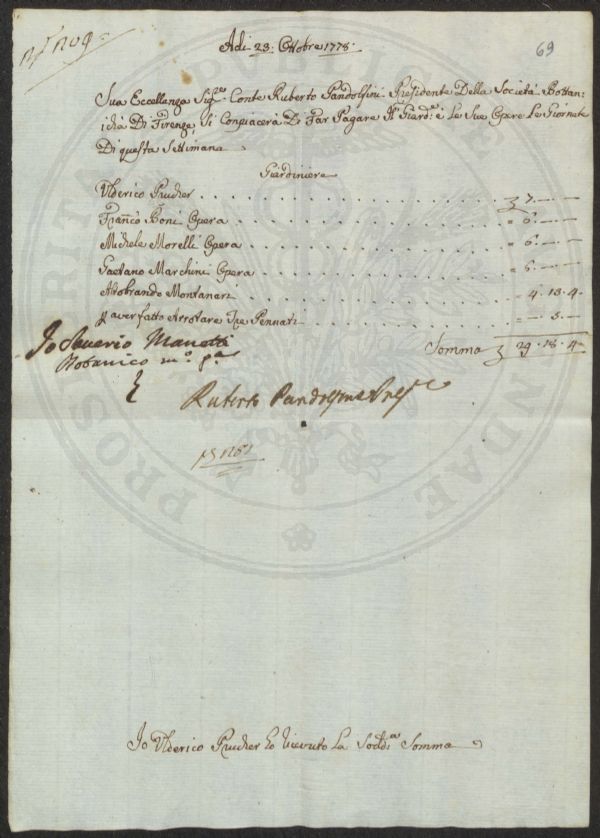 Adi 23: Ottobre 1778·
69
Sua Eccellenza Sig.re Conte Ruberto Pandolfini Presidente Della Società Bottan=
icha Di Firenze Si Conpiacerà Di Far Pagare Il Giard.re e Le Sue Opere Le Giornate
Di questa Settimana
Giardiniere
Ulderico Prucher . . . 7.—.—
Franco Boni Opera . . . = 6.—.—
Michele Morelli Opera . . . = 6.—.—
Gaetano Marchini Opera . . .
Aldobrando Montanari . . . = 4.18.4
p aver fatto Arrotare Tre Pennati . . . = —.5.—
Io Saverio Manetti
Botanico mo. pa.
Somma 29.18.4
Ruberto Pandolfini Presте
Io Ulderico Prucher ho ricevuto La Sodd.a Somma
PROSPERITATI PUBLICAE AUGENDAE